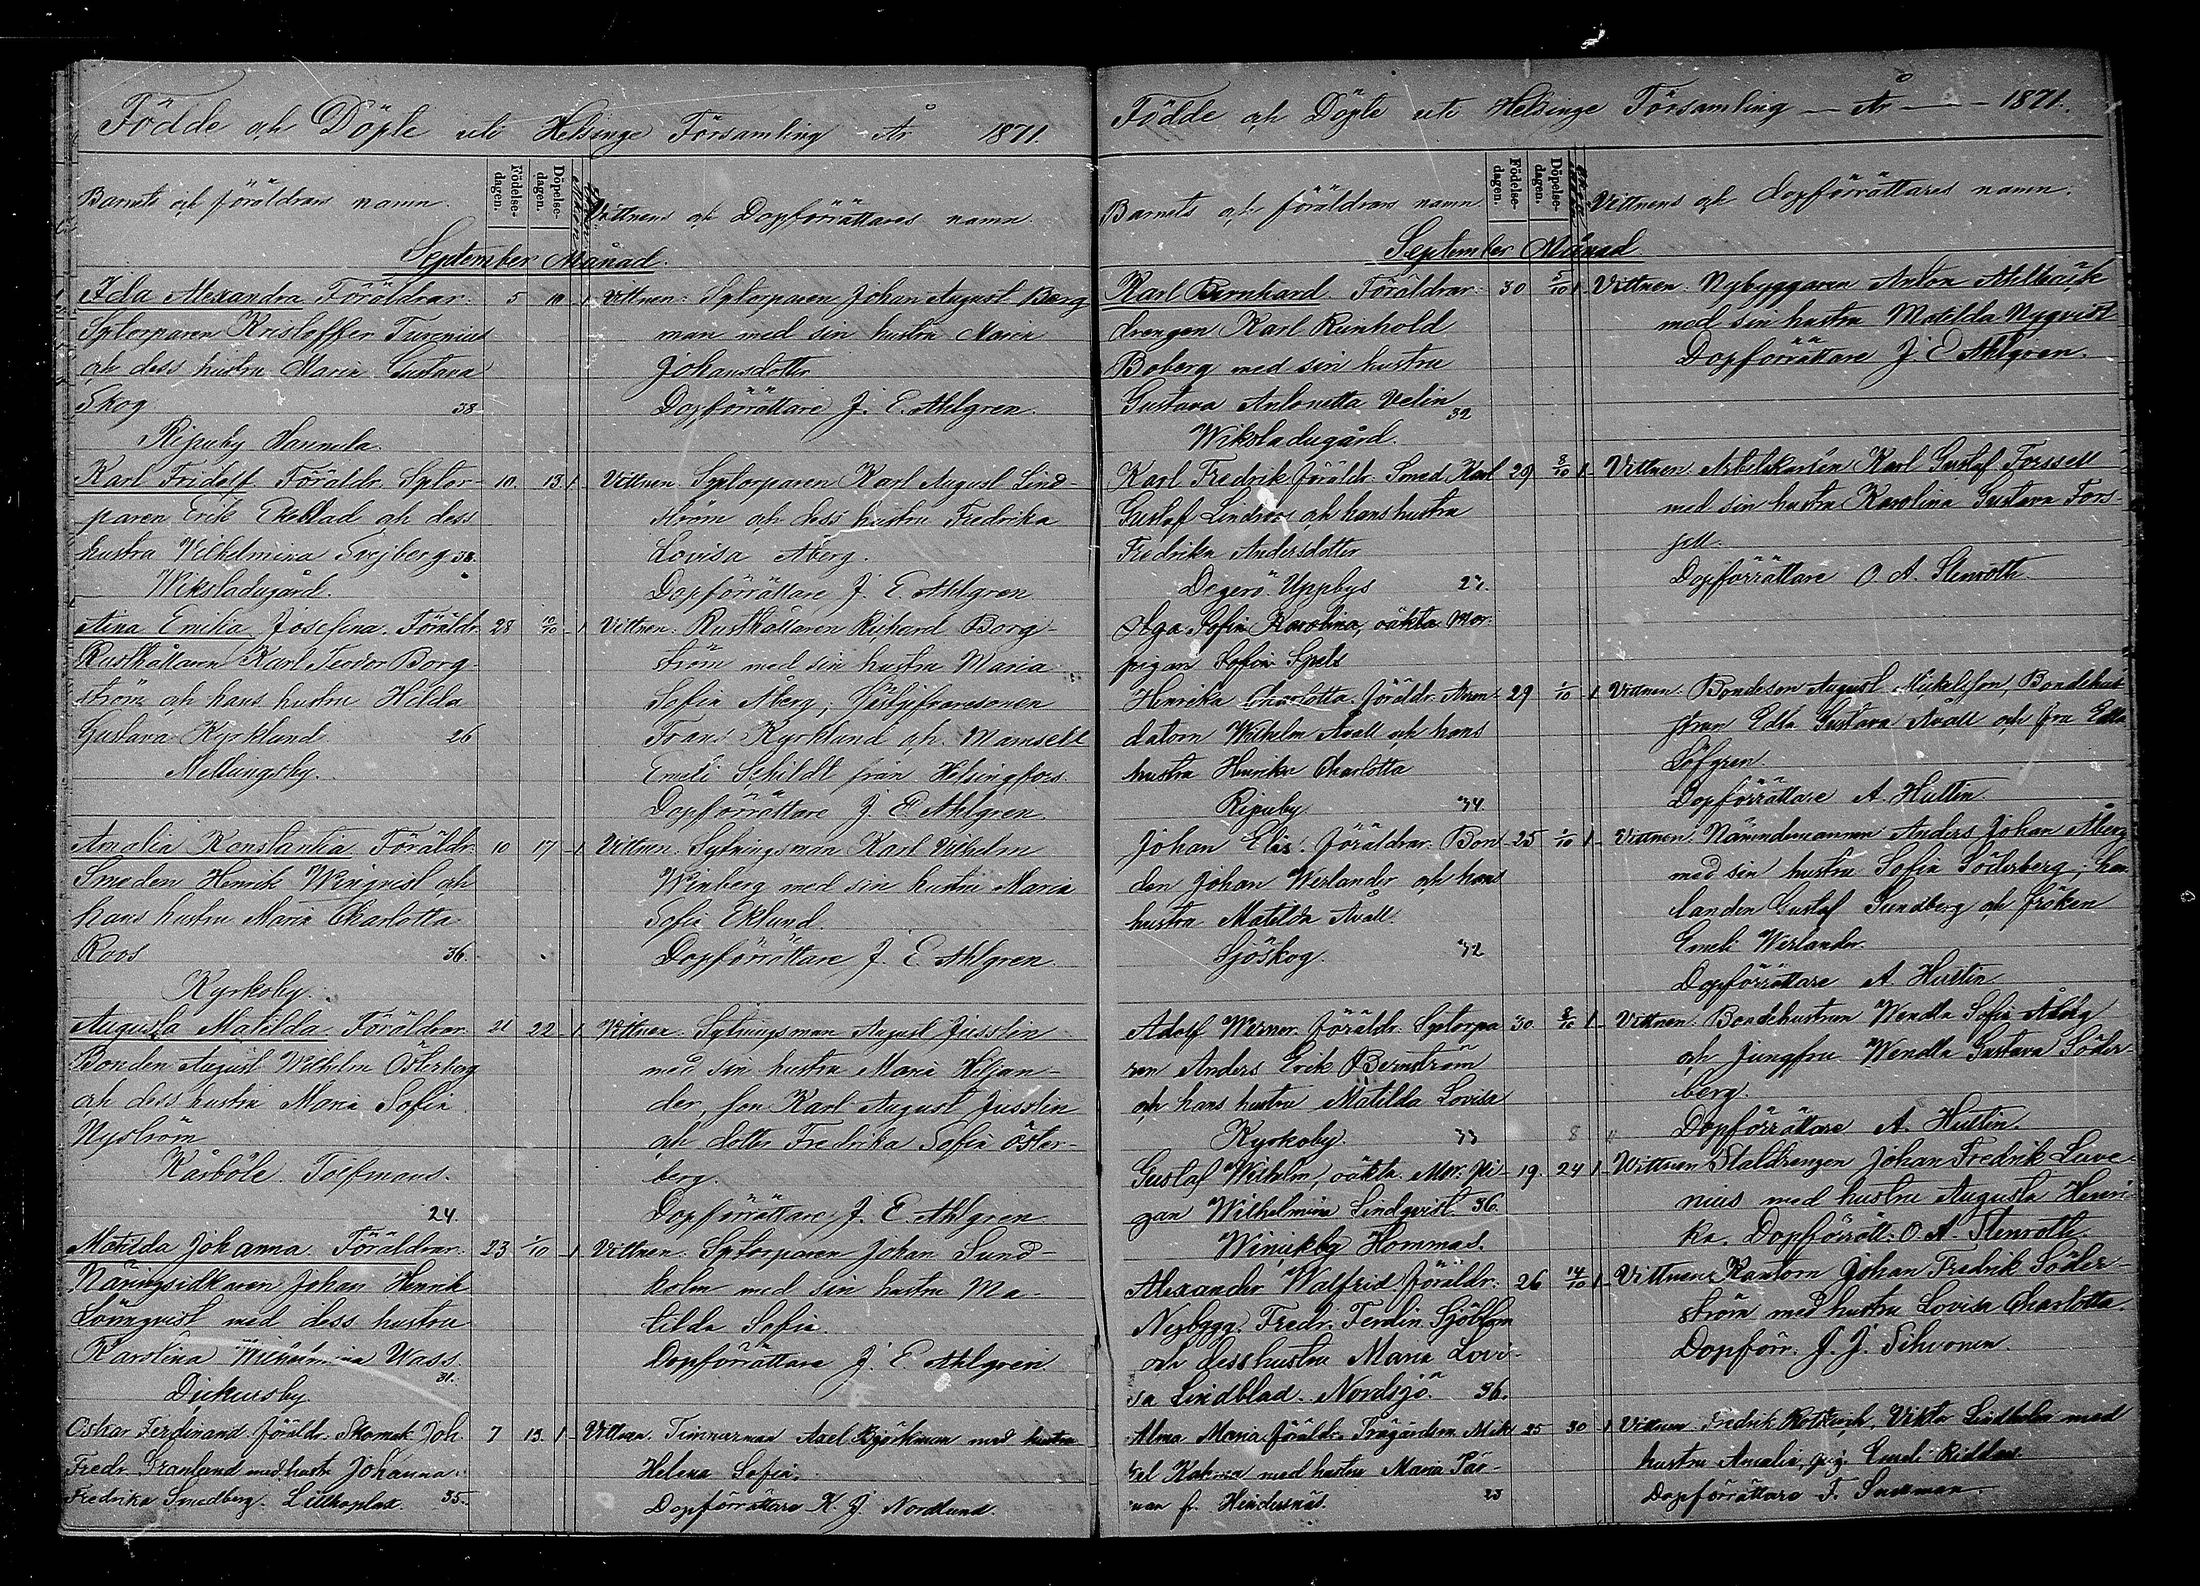 Födde och Döpte uti Helsinge Församling År 1871.
Barnets och föräldrars namn.
Födelse-dagen.
Döpelse-dagen.
Vittnens och Dopförrättares namn
September Månad.
Ida Alexandra Föräldrar 5 10 1 Vittnen: Sptorparen Johan August Berg
Sptorparen Kristoffer Turenius man med sin hustru Maria
och dess hustru Maria Gustava Johansdotter
Skog 38 Dopförrättare J. E. Ahlgren.
Ripuby Hannula.
Karl Fridolf Föräldr. Sptor- 10. 13 1 Vittnen. Sptorparen Karl August Lind-
paren Erik Ekeblad och dess ström och dess hustru Fredrika
hustru Vilhelmina 38. Lovisa Åberg.
Wiksladugård. Dopförrättare J. E. Ahlgren
Aina Emilia Josefina. Föräldr. 28 10/10 1 Vittnen. Rusthållaren Richard Borg-
Rusthållaren Karl Teodor Borg ström med sin hustru Maria
ström och hans hustru Hilda Sofia Åberg;
Gustava Kyrklund 26 Frans Kyrklund och Mamsell
Mellungsby. Emeli Schildt från Helsingfors
Dopförrättare J. E. Ahlgren
Amalia Konstantia Föräldr. 10 17 1 Vittnen. Sytningsman Karl Vilhelm
Smeden Henrik Winqvist och Winberg med sin hustru Maria
hans hustru Maria Charlotta Sofia Eklund.
Roos 36. Dopförrättare J. E. Ahlgren
Kyrkoby.
Augusta Matilda Föräldrar 21 22 1 Vittnen. Sytningsman August Jusslin
Bonden August Wilhelm Österberg med sin hustru Maria Kiljan-
och dess hustru Maria Sofia der, son Karl August Jusslin
Nyström och dotter Fredrika Sofia Öster-
Kårböle Tolfmans. berg.
24. Dopförrättare J. E. Ahlgren
Matilda Johanna Föräldrar. 23 1/10 1 Vittnen. Sptorparen Johan Sund-
Näringsidkaren Johan Henrik holm med sin hustru Ma-
Lönnqvist med dess hustru tilda Sofia.
Karolina Wilhelmina Wass. Dopförrättare J. E. Ahlgren
31.
Dickursby
Oskar Ferdinand föräldr. Skomak. Joh. 7 13 1 Vittnen. Timmerman Axel Björkman med hustru
Fredr. Granlund med hustr. Johanna Helena Sofia.
Fredrika Smedberg. Lillhoplax. 35. Dopförrättare K. J. Nordlund.
Födde och Döpte uti Helsinge Församling — År — 1871.
Barnets och föräldrars namn
Födelse-dagen.
Döpelse-dagen.
Vittnens och Dopförrättares namn.
September Månad
Karl Bernhard Föräldrar 30 5/10 1 Vittnen. Nybyggaren Anton Ahlbäck
drengen Karl Reinhold med sin hustru Matilda Nyqvist
Boberg med sin hustru Dopförrättare J. E. Ahlgren.
Gustava Antonetta Velin
32
Wiksladugård.
Karl Fredrik föräldr. Smed. Karl 29 8/10 1 Vittnen. Arbetskarlen Karl Gustaf Forssell
Gustaf Lindroos och hans hustru med sin hustru Karolina Gustava Fors-
Fredrika Andersdotter sell.
Degerö Uppbys 27. Dopförrättare O. A. Stenroth
Olga Sofia Karolina, oäkta. Mor:
pigan Sofia Spels
Henrika Charlotta föräldr. Aren- 29 1/10 1 Vittnen. Bondeson August Mickelsson, Bondehu-
datorn Wilhelm Avall och hans strun Edla Gustava Avall och fru Edla
hustru Henrika Charlotta Löfgren
Ripuby 34 Dopförrättare A. Hultin
Johan Elis. föräldrar. Bon- 25 1/10 1 Vittnen. Nämndemannen Anders Johan Åberg
den Johan Werlander och hans med sin hustru Sofia Söderberg;
hustru Matilda Avall landen Gustaf Sundberg och fröken
Sjöskog. 32 Emeli Werlander
Dopförrättare A. Hultin
Adolf Werner. föräldr. Sptorpa 30 8/10 1 Vittnen. Bondehustrun Wendla Sofia Åberg
ren Anders Erik Bernström och jungfru Wendla Gustava Söder-
och hans hustru Matilda Lovisa berg.
Kyrkoby. 33 8 Dopförrättare A. Hultin.
Gustaf Wilhelm, oäkta. Mor. Pi- 19. 24 1 Vittnen Staldrengen Johan Fredrik Leve-
gan Wilhelmina Lindqvist 36. nius med hustru Augusta Henri-
Winikby Hommas. ka. Dopförrätt. O. A. Stenroth.
Alexander Walfrid föräldr. 26 14/10 1 Vittnen: Kantorn Johan Fredrik Söder-
Nybygg. Fredr. Ferdin. Sjöblom ström med hustru Lovisa Charlotta.
och dess hustru Maria Lovi- Dopförr. J. J. Sihvonen.
sa Lindblad. Nordsjö. 36.
Alma Maria föräldr. Trägårdsm. Mik- 25 30 1 Vittnen Fredrik Viktor Lindholm med
kel med hustru Maria hustru Amalia, pig. Emeli
Hindersnäs. 23 Dopförrättare F. Snellman.